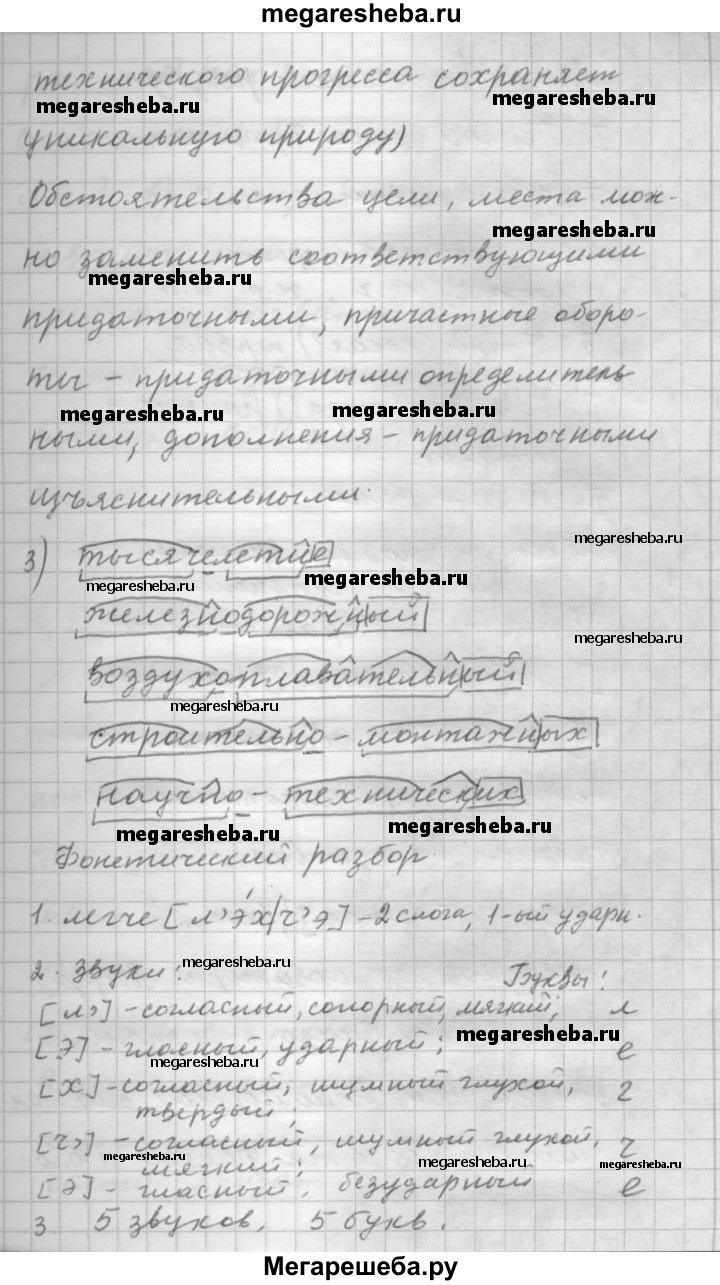 megaresheba.ru
технического прогресса сохраняет
megaresheba.ru megaresheba.ru
уникальную природу)
Обстоятельства цели, места мож-
megaresheba.ru
но заменить соответствующими
megaresheba.ru
придаточными, причастные оборо-
ты – придаточными определитель
megaresheba.ru megaresheba.ru
ными, дополнения – придаточными
изъяснительными.
megaresheba.ru
3) тысячелетие
megaresheba.ru megaresheba.ru
железнодорожный
megaresheba.ru
воздухоплавательный
megaresheba.ru
строительно – монтажных
научно – технических
megaresheba.ru megaresheba.ru
Фонетический разбор.
1. легче [л’э́х/ч’э] – 2 слога, 1-ый ударн.
2. Звуки: megaresheba.ru Буквы:
[л’] – согласный, сонорный, мягкий; л
[э] – гласный, ударный; megaresheba.ru е
megaresheba.ru
[х] – согласный, шумный глухой, г
твердый;
[ч’] – согласный, шумный глухой, ч
megaresheba.ru мягкий; megaresheba.ru megaresheba.ru
[э] – гласный, безударный е
3 5 звуков, 5 букв.
Мегарешеба.ру